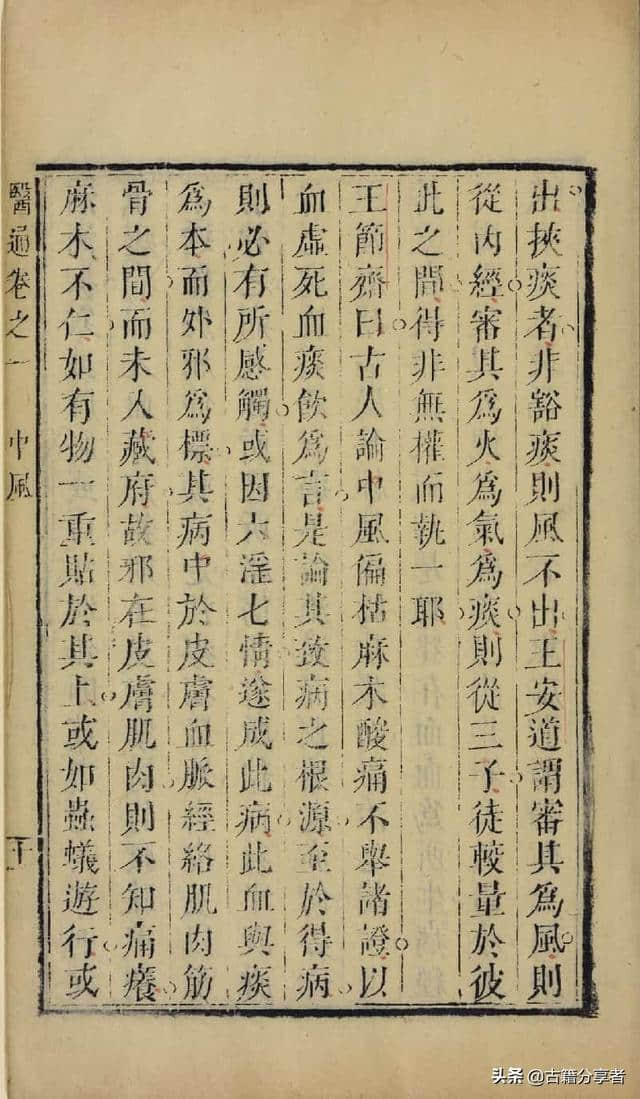 出挾痰者非豁痰則風不出王安道謂審其為風則
從內經審其為火為氣為痰則從三子徒較量於彼
此之間得非無權而執一耶
王節齋曰古人論中風偏枯麻木酸痛不舉諸證以
血虛死血痰飲為言是論其致病之根源至於得病
則必有所感觸或因六淫七情遂成此病此血與痰
為本而外邪為標其病中於皮膚血脈經絡肌肉筋
骨之間而未入藏府故邪在皮膚肌肉則不知痛癢
麻木不仁如有物一重貼於其上或如蟲蟻遊行或
醫通卷之一 中風 十
头条 @古籍分享者